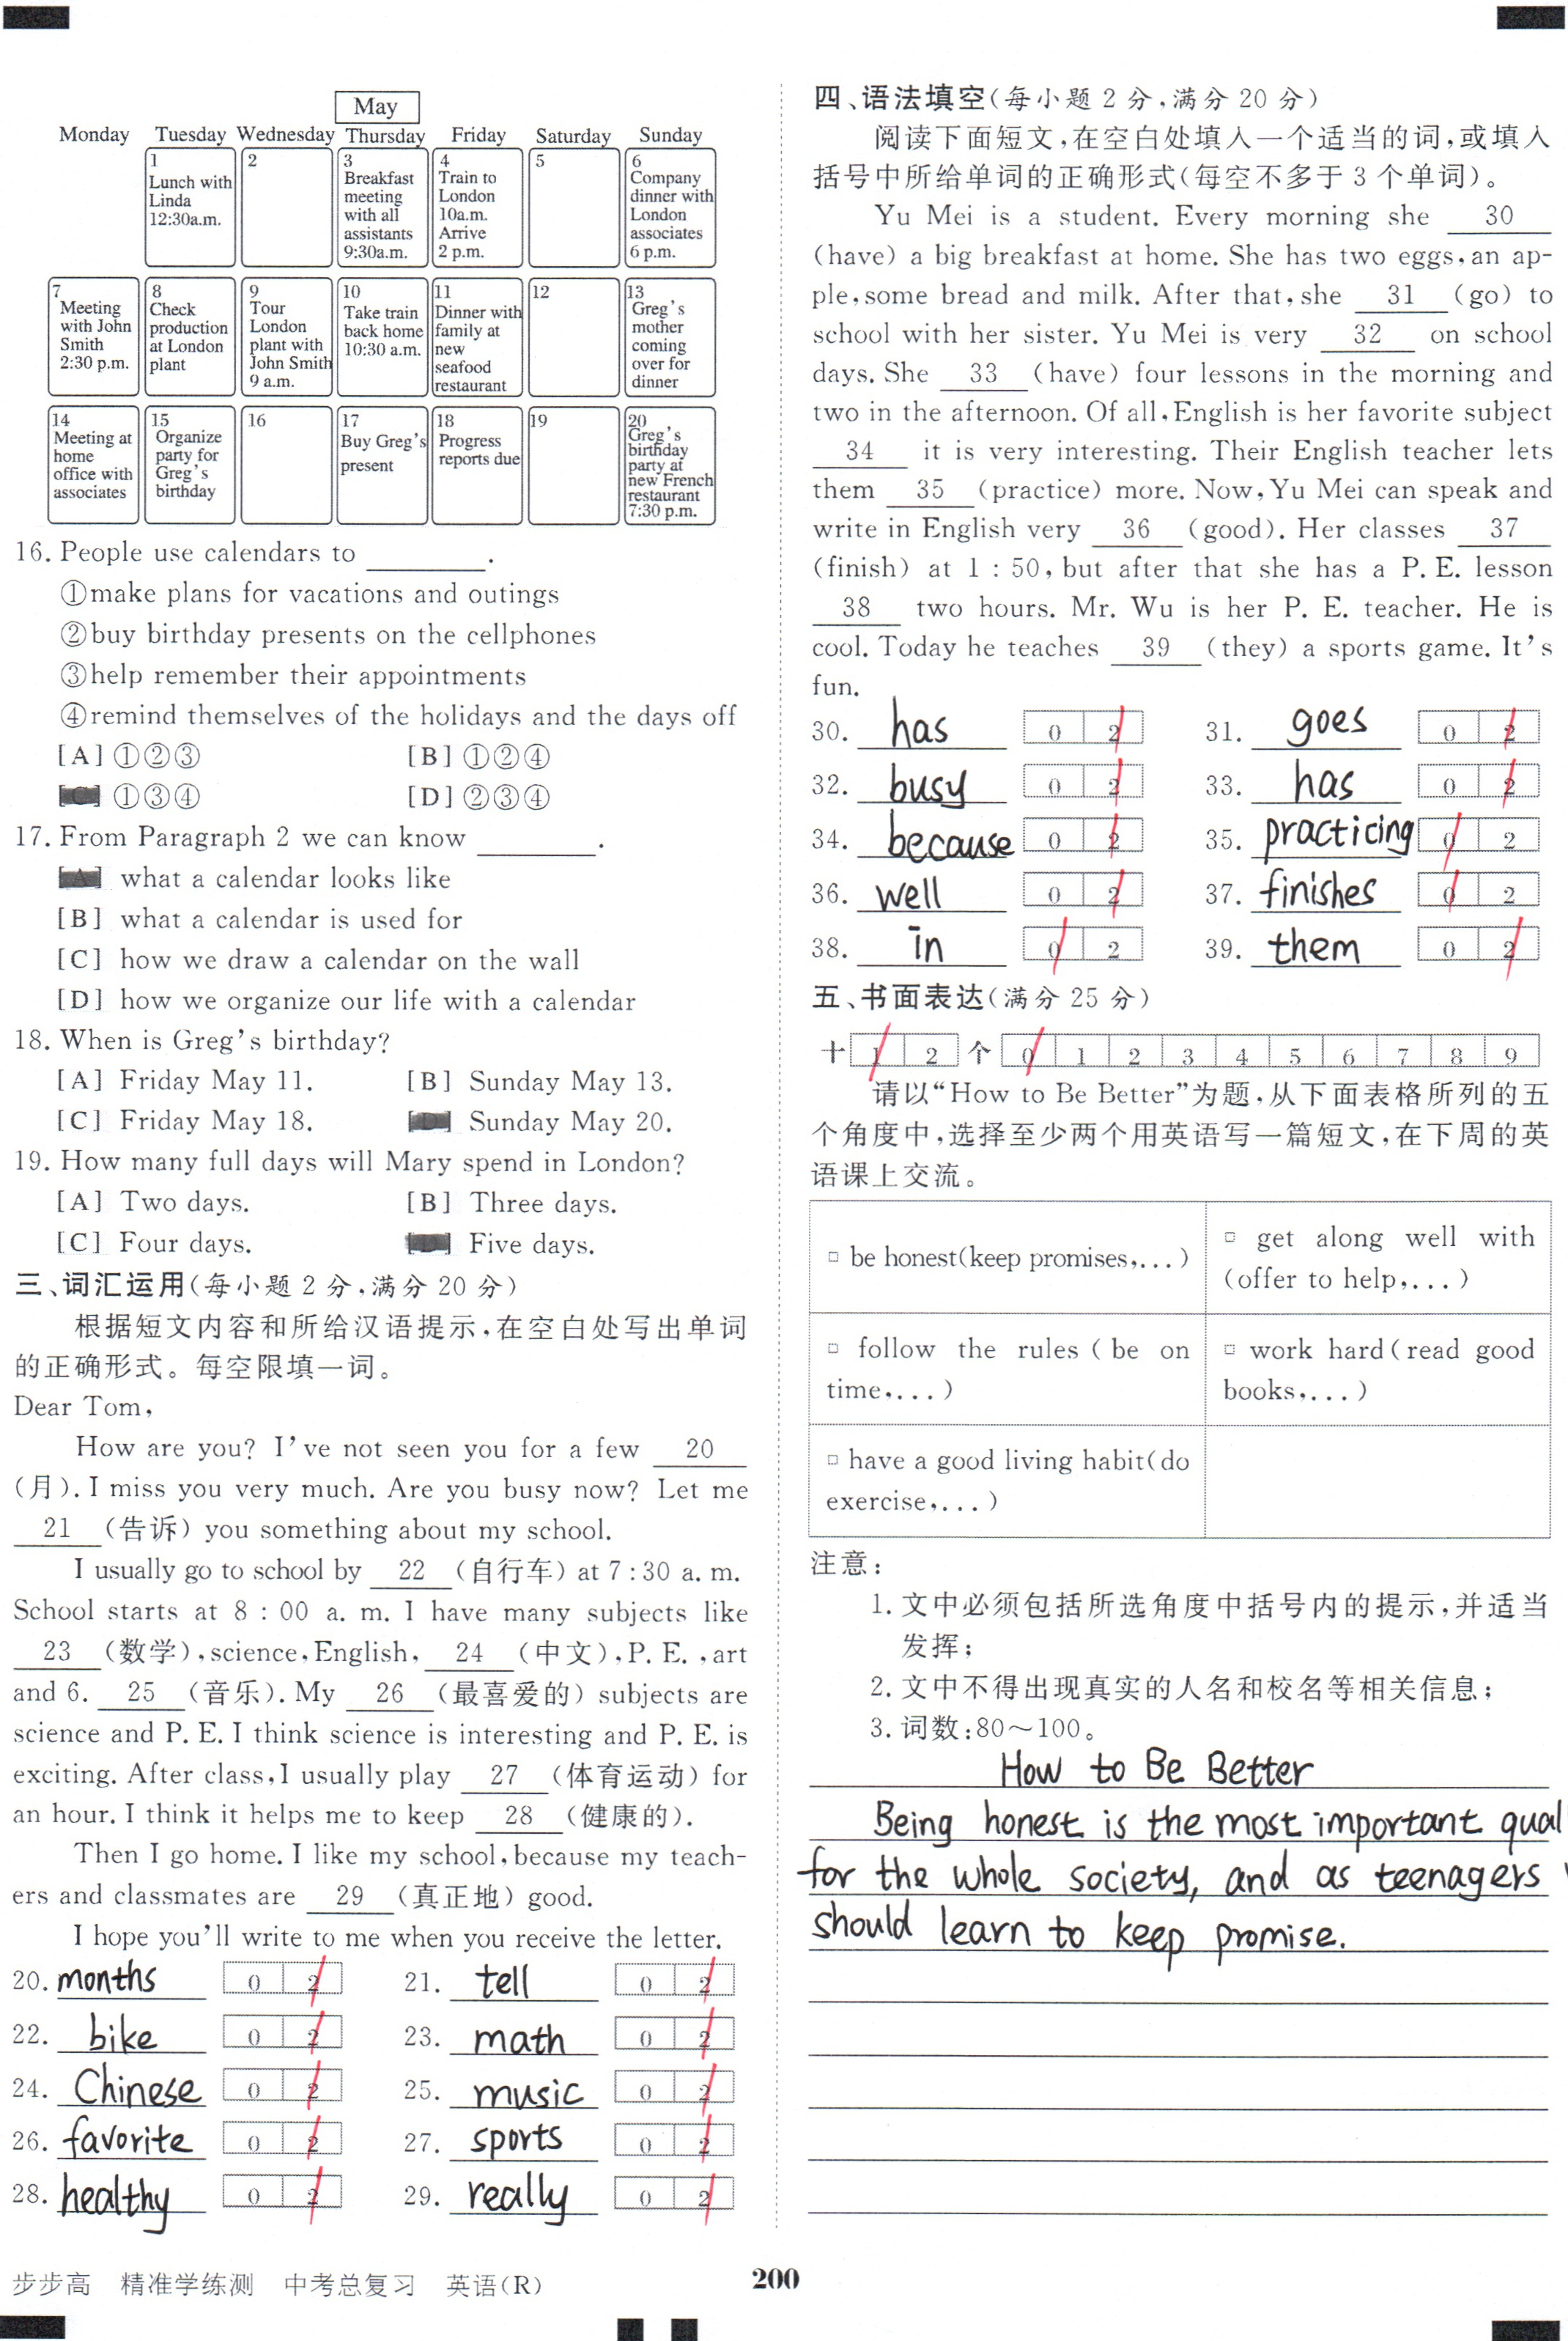 May
Monday Tuesday Wednesday Thursday Friday Saturday Sunday
1
Lunch with
Linda
12:30a.m.
2
3
Breakfast
meeting
with all
assistants
9:30a.m.
4
Train to
London
10a.m.
Arrive
2 p.m.
5
6
Company
dinner with
London
associates
6 p.m.
7
Meeting
with John
Smith
2:30 p.m.
8
Check
production
at London
plant
9
Tour
London
plant with
John Smith
9 a.m.
10
Take train
back home
10:30 a.m.
11
Dinner with
family at
new
seafood
restaurant
12
13
Greg's
mother
coming
over for
dinner
14
Meeting at
home
office with
associates
15
Organize
party for
Greg's
birthday
16
17
Buy Greg's
present
18
Progress
reports due
19
20
Greg's
birthday
party at
new French
restaurant
7:30 p.m.
16. People use calendars to ______.
①make plans for vacations and outings
②buy birthday presents on the cellphones
③help remember their appointments
④remind themselves of the holidays and the days off
[A] ①②③ [B] ①②④
[C] ①③④ [D] ②③④
17. From Paragraph 2 we can know ______.
[A] what a calendar looks like
[B] what a calendar is used for
[C] how we draw a calendar on the wall
[D] how we organize our life with a calendar
18. When is Greg's birthday?
[A] Friday May 11. [B] Sunday May 13.
[C] Friday May 18. [D] Sunday May 20.
19. How many full days will Mary spend in London?
[A] Two days. [B] Three days.
[C] Four days. [D] Five days.
三、词汇运用(每小题2分,满分20分)
根据短文内容和所给汉语提示,在空白处写出单词
的正确形式。每空限填一词。
Dear Tom,
How are you? I've not seen you for a few 20
(月). I miss you very much. Are you busy now? Let me
21 (告诉) you something about my school.
I usually go to school by 22 (自行车) at 7:30 a. m.
School starts at 8 : 00 a. m. I have many subjects like
23 (数学), science, English, 24 (中文), P. E. , art
and 6. 25 (音乐). My 26 (最喜爱的) subjects are
science and P. E. I think science is interesting and P. E. is
exciting. After class, I usually play 27 (体育运动) for
an hour. I think it helps me to keep 28 (健康的).
Then I go home. I like my school, because my teach-
ers and classmates are 29 (真正地) good.
I hope you'll write to me when you receive the letter.
20. months 0 2 21. tell 0 2
22. bike 0 2 23. math 0 2
24. Chinese 0 2 25. music 0 2
26. favorite 0 2 27. sports 0 2
28. healthy 0 2 29. really 0 2
四、语法填空(每小题2分,满分20分)
阅读下面短文,在空白处填入一个适当的词,或填入
括号中所给单词的正确形式(每空不多于3个单词)。
Yu Mei is a student. Every morning she 30
(have) a big breakfast at home. She has two eggs, an ap-
ple, some bread and milk. After that, she 31 (go) to
school with her sister. Yu Mei is very 32 on school
days. She 33 (have) four lessons in the morning and
two in the afternoon. Of all, English is her favorite subject
34 it is very interesting. Their English teacher lets
them 35 (practice) more. Now, Yu Mei can speak and
write in English very 36 (good). Her classes 37
(finish) at 1 : 50, but after that she has a P. E. lesson
38 two hours. Mr. Wu is her P. E. teacher. He is
cool. Today he teaches 39 (they) a sports game. It's
fun.
30. has 0 2 31. goes 0 2
32. busy 0 2 33. has 0 2
34. because 0 2 35. practicing 0 2
36. well 0 2 37. finishes 0 2
38. in 0 2 39. them 0 2
五、书面表达(满分25分)
十 1 2 个 0 1 2 3 4 5 6 7 8 9
请以“How to Be Better”为题,从下面表格所列的五
个角度中,选择至少两个用英语写一篇短文,在下周的英
语课上交流。
□ be honest(keep promises,...)
□ get along well with
(offer to help,...)
□ follow the rules (be on
time,...)
□ work hard(read good
books,...)
□ have a good living habit(do
exercise,...)
注意:
1. 文中必须包括所选角度中括号内的提示,并适当
发挥;
2. 文中不得出现真实的人名和校名等相关信息;
3. 词数:80~100。
How to Be Better
Being honest is the most important qual
for the whole society, and as teenagers
should learn to keep promise.
步步高 精准学练测 中考总复习 英语(R)
200